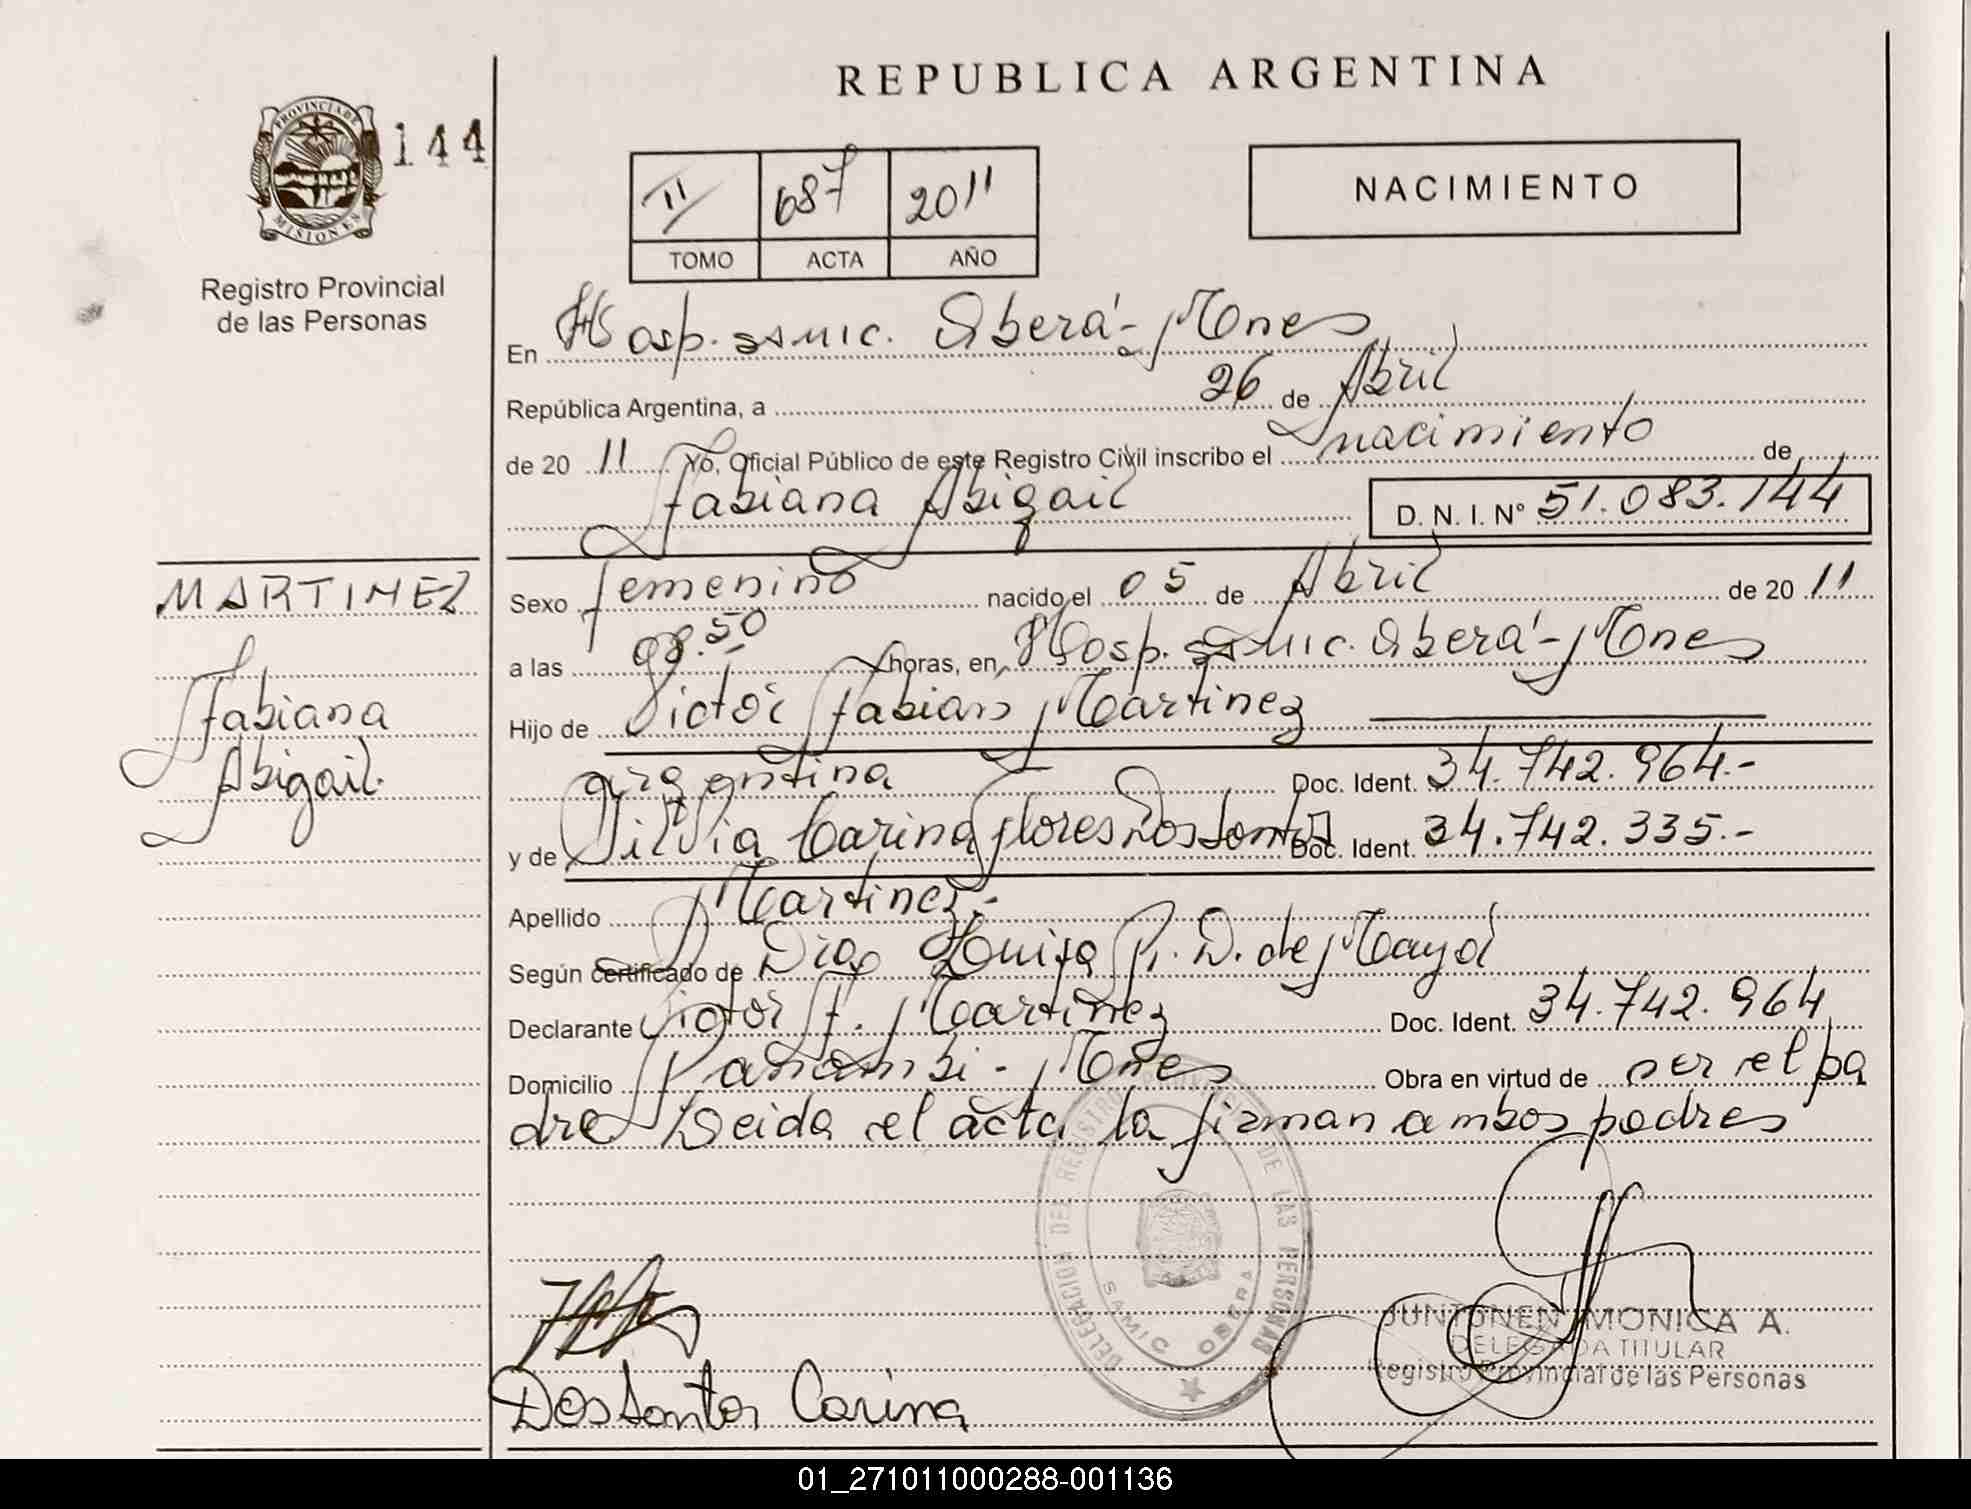 REPUBLICA ARGENTINA
PROVINCIA DE
MISIONES
144
Registro Provincial
de las Personas
II 687 2011
TOMO ACTA AÑO
NACIMIENTO
En Hosp. SAMIC. Oberá - Mnes
República Argentina, a 26 de Abril
de 20 11 Yo, Oficial Público de este Registro Civil inscribo el nacimiento de
Fabiana Abigail D. N. I. N° 51.083.144
MARTINEZ
Fabiana
Abigail.
Sexo femenino nacido el 05 de Abril de 20 11
a las 08.50 horas, en Hosp. SAMIC. Oberá - Mnes
Hijo de Victor Fabian Martinez
argentina Doc. Ident. 34.742.964.-
y de Silvia Carina Flores Dos Santos Doc. Ident. 34.742.335.-
Apellido Martinez.-
Según certificado de D. Diag Luisa R. D. de
Declarante Victor F. Martinez Doc. Ident. 34.742.964
Domicilio Panambi - Mnes Obra en virtud de ser el pa
dre Leida el acta la firman ambos padres
DELEGACION DEL REGISTRO PROVINCIAL DE LAS PERSONAS
SAMIC OBERA
JUNTONEN MONICA A.
DELEGADA TITULAR
Registro Provincial de las Personas
Dos Santos Carina
01_271011000288-001136